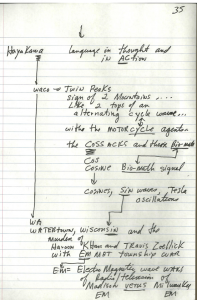 35
Hayakawa Language in thought and
in ACtion
waco → Twin Peaks
sign of 2 Mountains ....
like 2 tops of an
alternating cycle wave...
withe the MOTORcycle agents
the COSSACKS and there Bio-math
Cos
Cosine Bio-math signal
→ cosines, Sin waves, Tesla
oscillations
WA
WATERtown, wisconsin and the
Murder of
Haroon Khan and TRAVIS Zoellick
with EMMET township war
EM= Electro Magnetic wave WARS
of Radio/television
Madison versus Milwaukee
EM EM